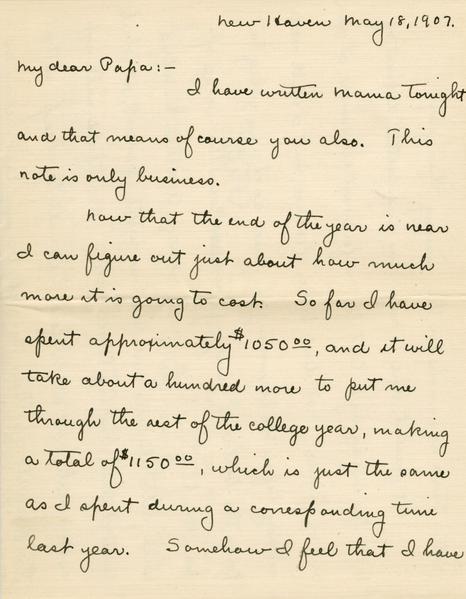 New Haven May 18, 1907.
My dear Papa:—
I have written mama tonight
and that means of course you also. This
note is only business.
Now that the end of the year is near
I can figure out just about how much
more it is going to cost. So far I have
spent approximately $1050 00, and it will
take about a hundred more to put me
through the rest of the college year, making
a total of $1150 00, which is just the same
as I spent during a corresponding time
last year. Somehow I feel that I have